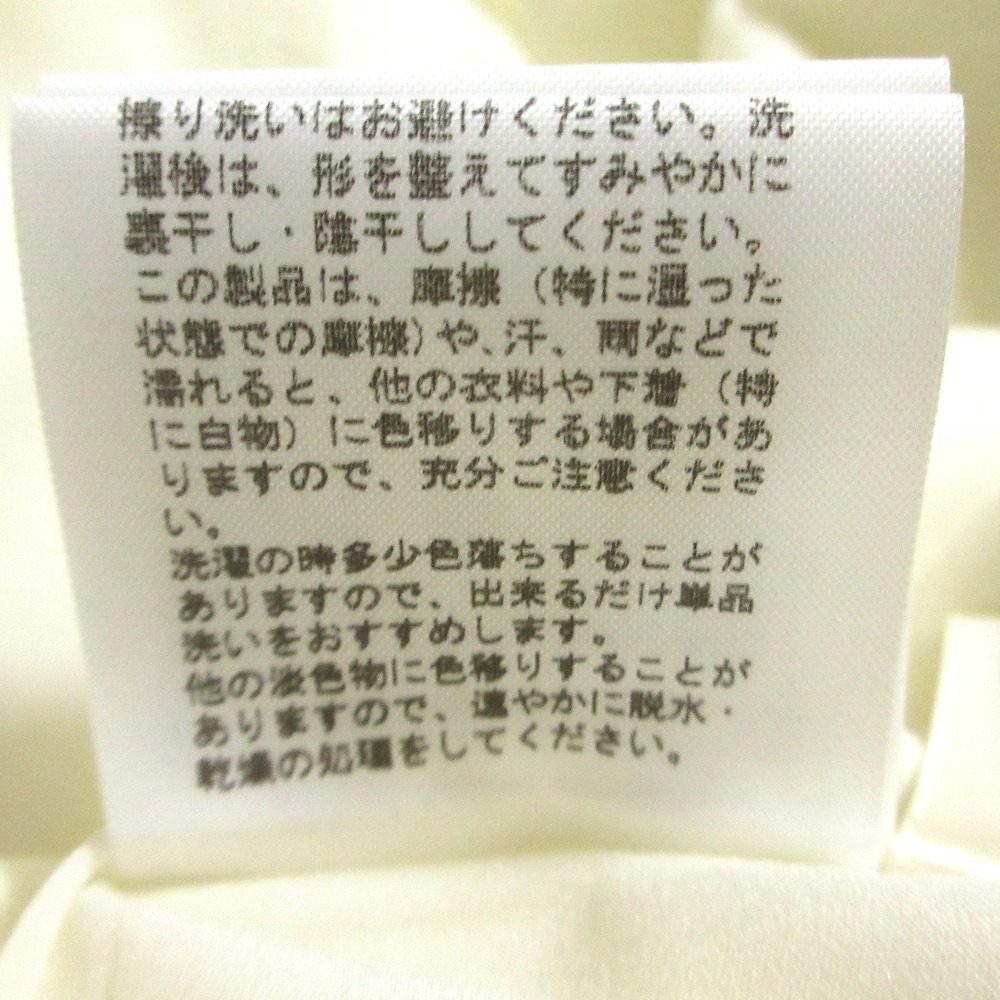 擦り洗いはお避けください。洗
濯後は、形を整えてすみやかに
裏干し・陰干ししてください。
この製品は、摩擦（特に湿った
状態での摩擦）や、汗、雨などで
濡れると、他の衣料や下着（特
に白物）に色移りする場合があ
りますので、充分ご注意くださ
い。
洗濯の時多少色落ちすることが
ありますので、出来るだけ単品
洗いをおすすめします。
他の淡色物に色移りすることが
ありますので、速やかに脱水・
乾燥の処理をしてください。